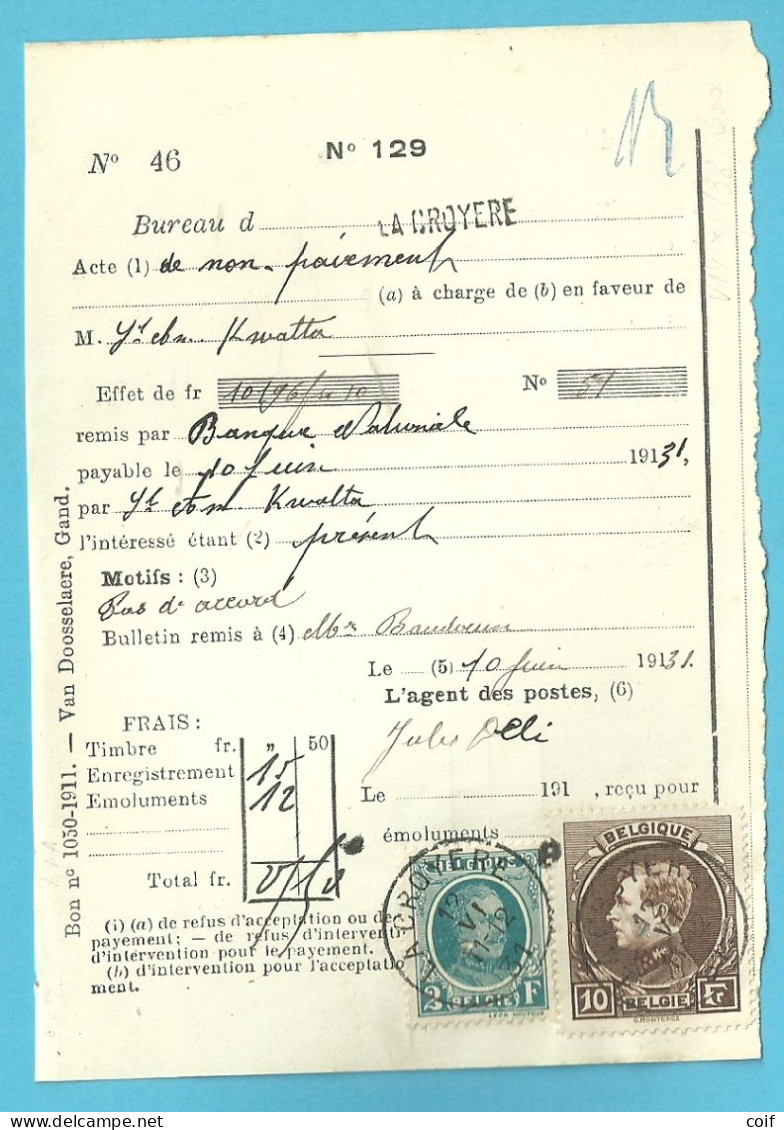 Nº 46
Nº 129
Bureau d LA CROYERE
Acte (1) de non-paiement
(a) à charge de (b) en faveur de
M. Sté Kwatta
Effet de fr Nº 51
remis par Banque Nationale
payable le 10 Juin 1931,
par Sté Kwatta
l'intéressé étant (2) présent
Motifs : (3)
Pas d'accord
Bulletin remis à (4)
Le (5) 10 juin 1931.
L'agent des postes, (6)
Jules
FRAIS :
Timbre fr. „ 50
Enregistrement 15
Emoluments 12
Le 191 , reçu pour
émoluments
Total fr.
(i) (a) de refus d'acceptation ou de
payement; — de refus d'interven
d'intervention pour le payement.
(b) d'intervention pour l'acceptati
ment.
Bon nº 1050-1911. — Van Doosselaere, Gand.
BELGIQUE
2 F BELGIE
LA CROYERE
12 VI 11-12 31
BELGIQUE
10 BELGIE Fr
G. MONTENEZ
coif